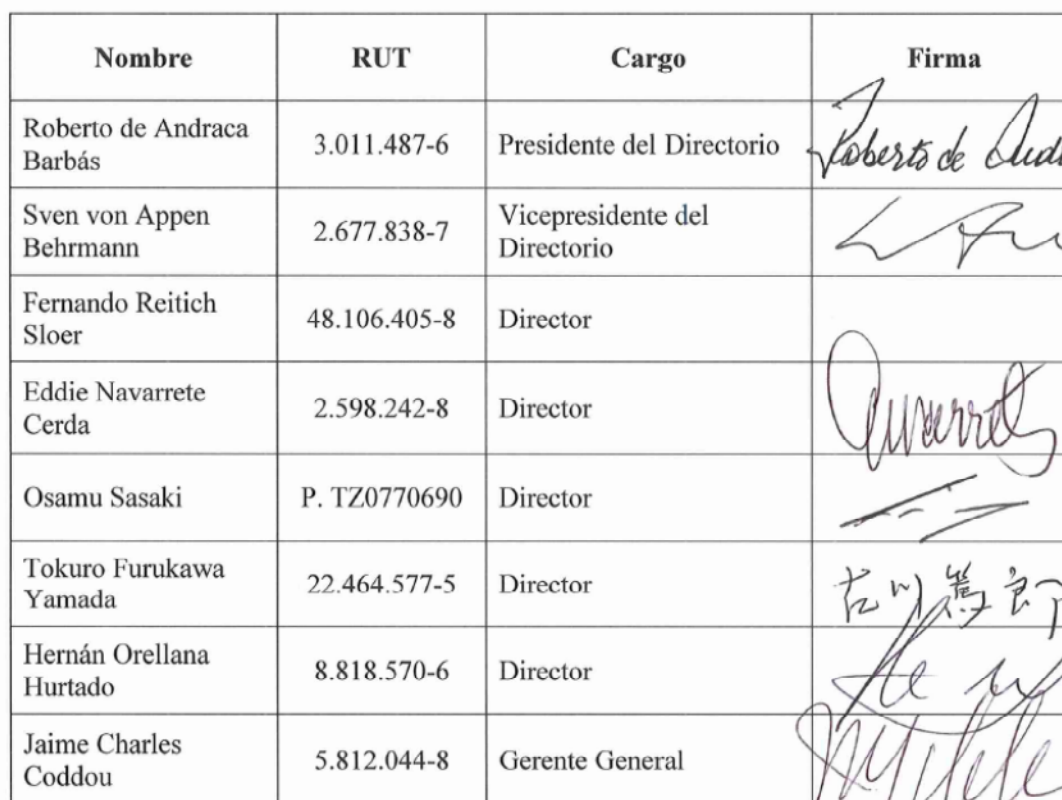 Nombre RUT Cargo Firma
Roberto de Andraca
Barbás 3.011.487-6 Presidente del Directorio Roberto de
Sven von Appen
Behrmann 2.677.838-7 Vicepresidente del
Directorio
Fernando Reitich
Sloer 48.106.405-8 Director
Eddie Navarrete
Cerda 2.598.242-8 Director
Osamu Sasaki P. TZ0770690 Director
Tokuro Furukawa
Yamada 22.464.577-5 Director 古川篤郎
Hernán Orellana
Hurtado 8.818.570-6 Director
Jaime Charles
Coddou 5.812.044-8 Gerente General